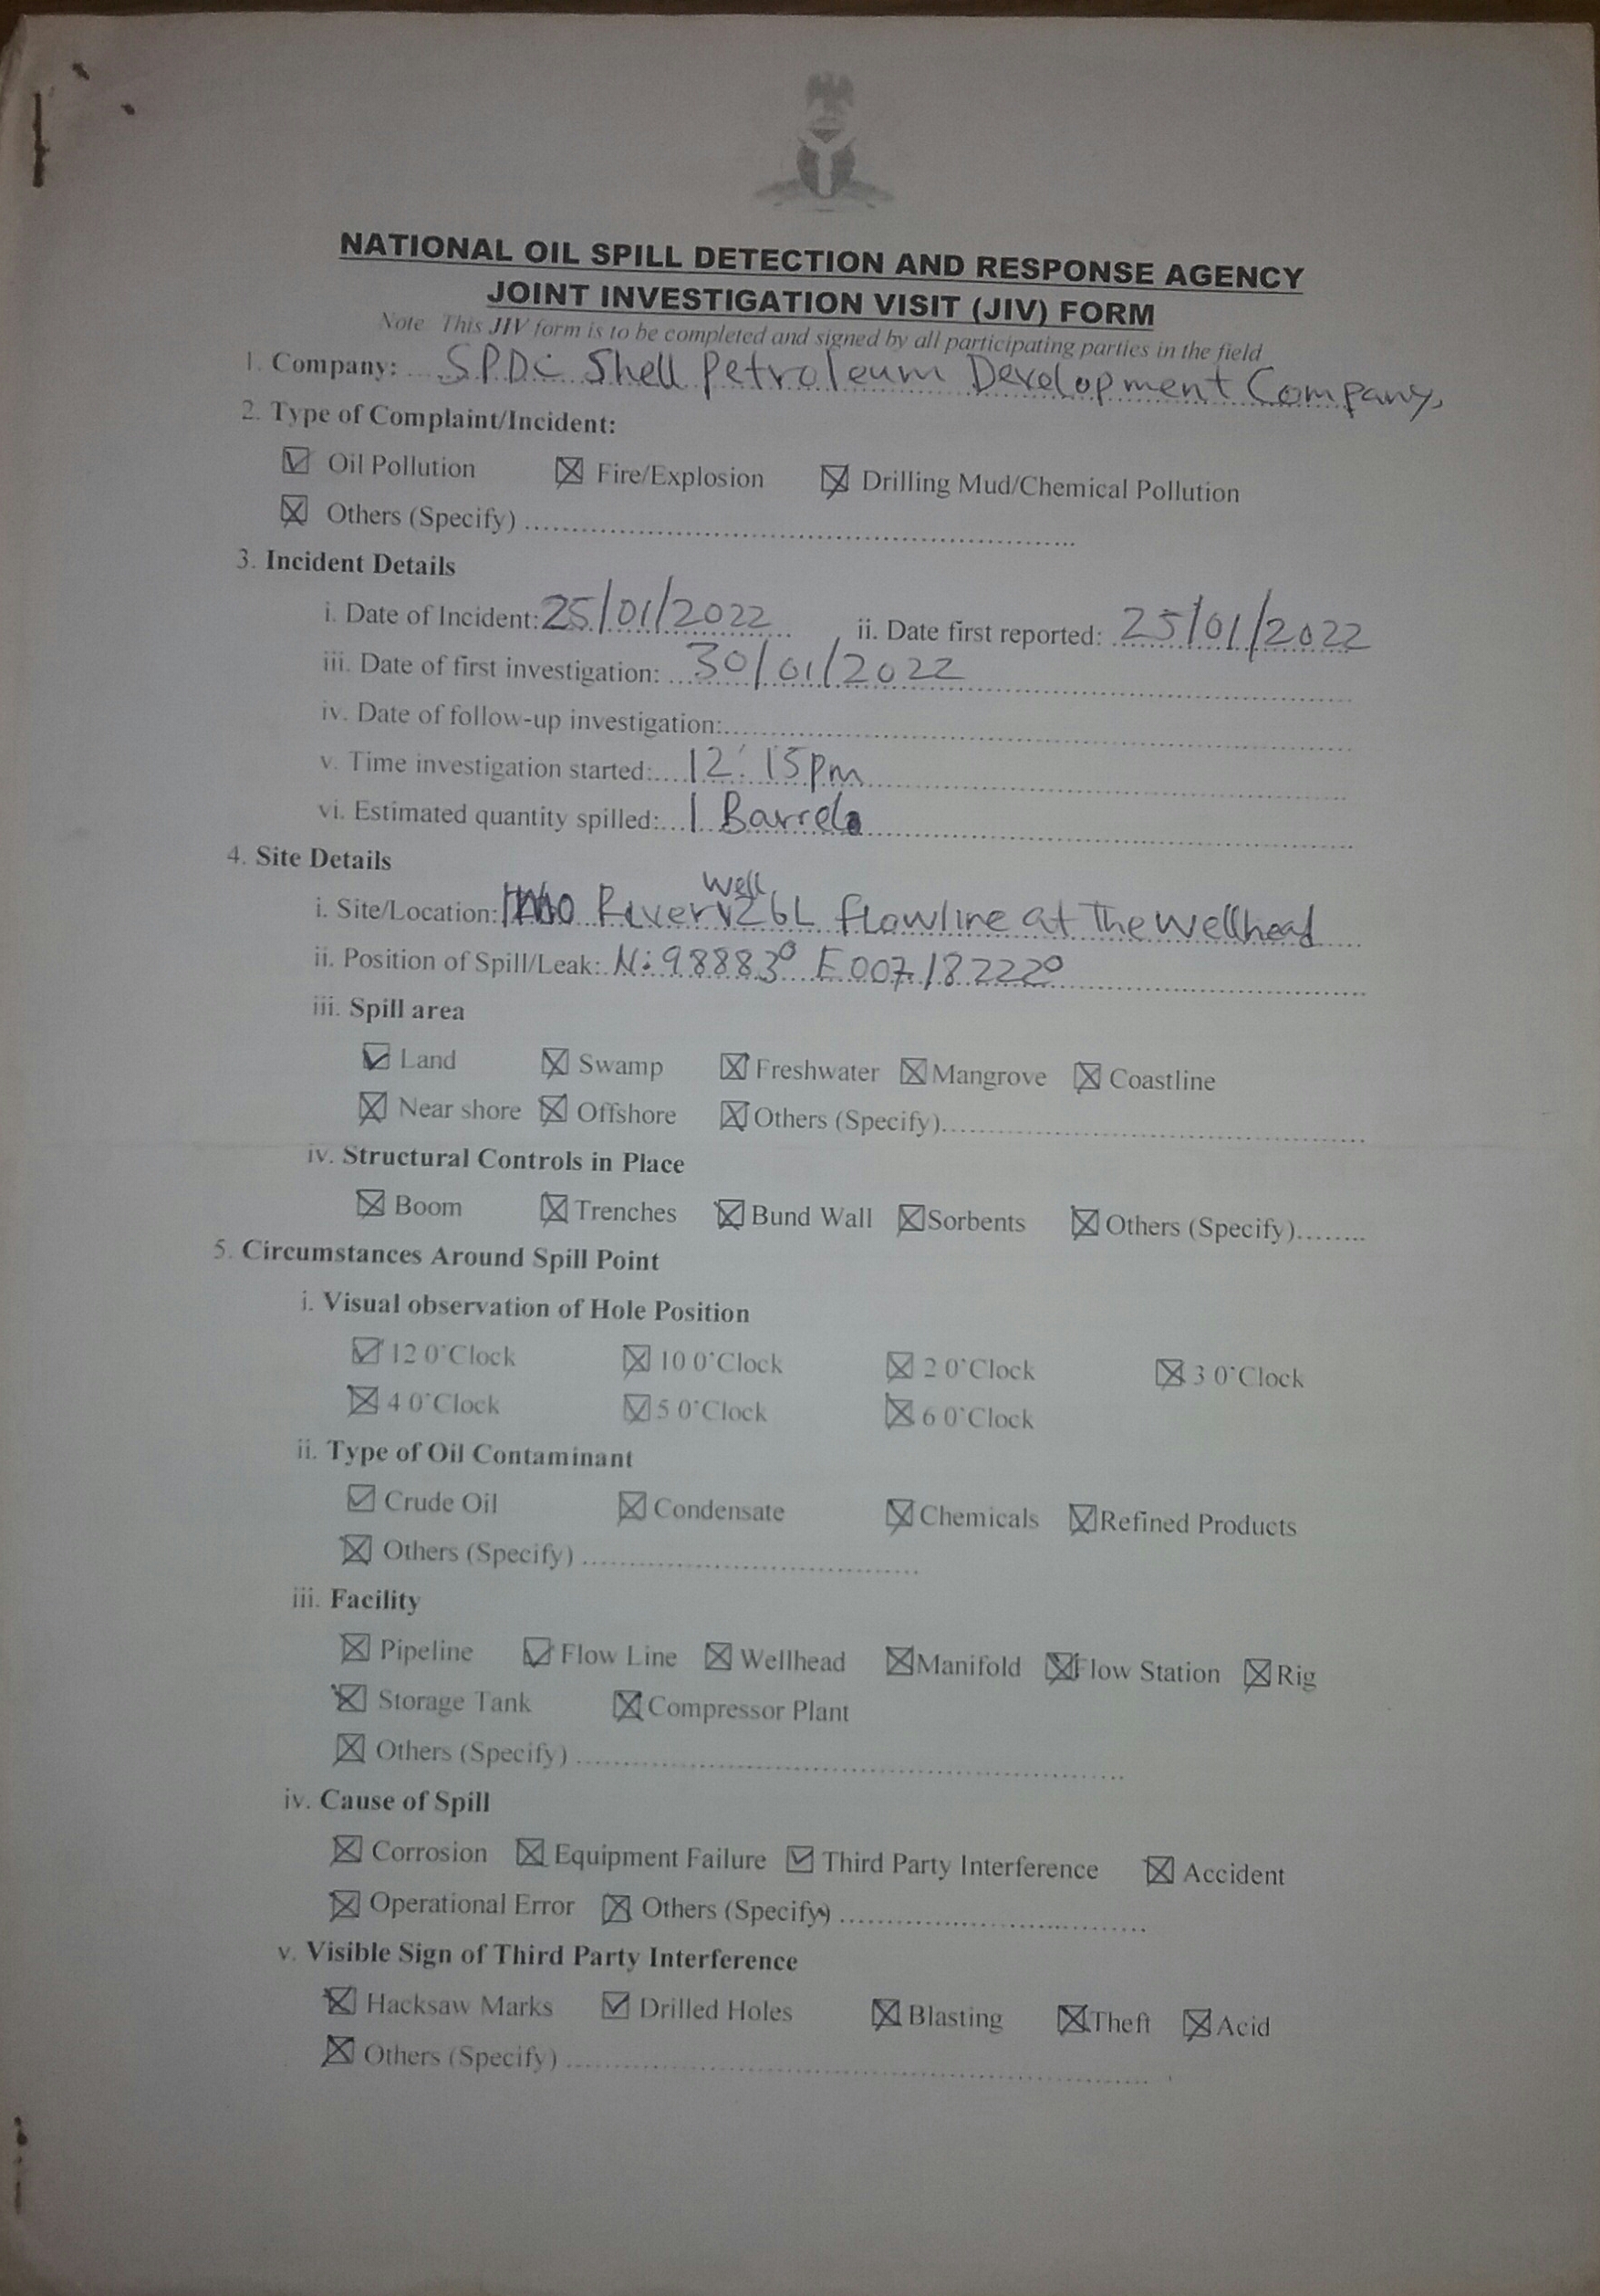 NATIONAL OIL SPILL DETECTION AND RESPONSE AGENCY
JOINT INVESTIGATION VISIT (JIV) FORM
Note: This JIV form is to be completed and signed by all participating parties in the field
1. Company: SPDC Shell Petroleum Development Company,
2. Type of Complaint/Incident:
☑ Oil Pollution ☒ Fire/Explosion ☒ Drilling Mud/Chemical Pollution
☒ Others (Specify)
3. Incident Details
i. Date of Incident: 25/01/2022 ii. Date first reported: 25/01/2022
iii. Date of first investigation: 30/01/2022
iv. Date of follow-up investigation:
v. Time investigation started: 12:15pm
vi. Estimated quantity spilled: 1 Barrel
4. Site Details
i. Site/Location: River Well 26L flowline at The wellhead
ii. Position of Spill/Leak: N:98883° E007.18222°
iii. Spill area
☑ Land ☒ Swamp ☒ Freshwater ☒ Mangrove ☒ Coastline
☒ Near shore ☒ Offshore ☒ Others (Specify)
iv. Structural Controls in Place
☒ Boom ☒ Trenches ☒ Bund Wall ☒ Sorbents ☒ Others (Specify)
5. Circumstances Around Spill Point
i. Visual observation of Hole Position
☑ 12 0'Clock ☒ 10 0'Clock ☒ 2 0'Clock ☒ 3 0'Clock
☒ 4 0'Clock ☑ 5 0'Clock ☒ 6 0'Clock
ii. Type of Oil Contaminant
☑ Crude Oil ☒ Condensate ☒ Chemicals ☒ Refined Products
☒ Others (Specify)
iii. Facility
☒ Pipeline ☑ Flow Line ☒ Wellhead ☒ Manifold ☒ Flow Station ☒ Rig
☒ Storage Tank ☒ Compressor Plant
☒ Others (Specify)
iv. Cause of Spill
☒ Corrosion ☒ Equipment Failure ☑ Third Party Interference ☒ Accident
☒ Operational Error ☒ Others (Specify)
v. Visible Sign of Third Party Interference
☒ Hacksaw Marks ☑ Drilled Holes ☒ Blasting ☒ Theft ☒ Acid
☒ Others (Specify)